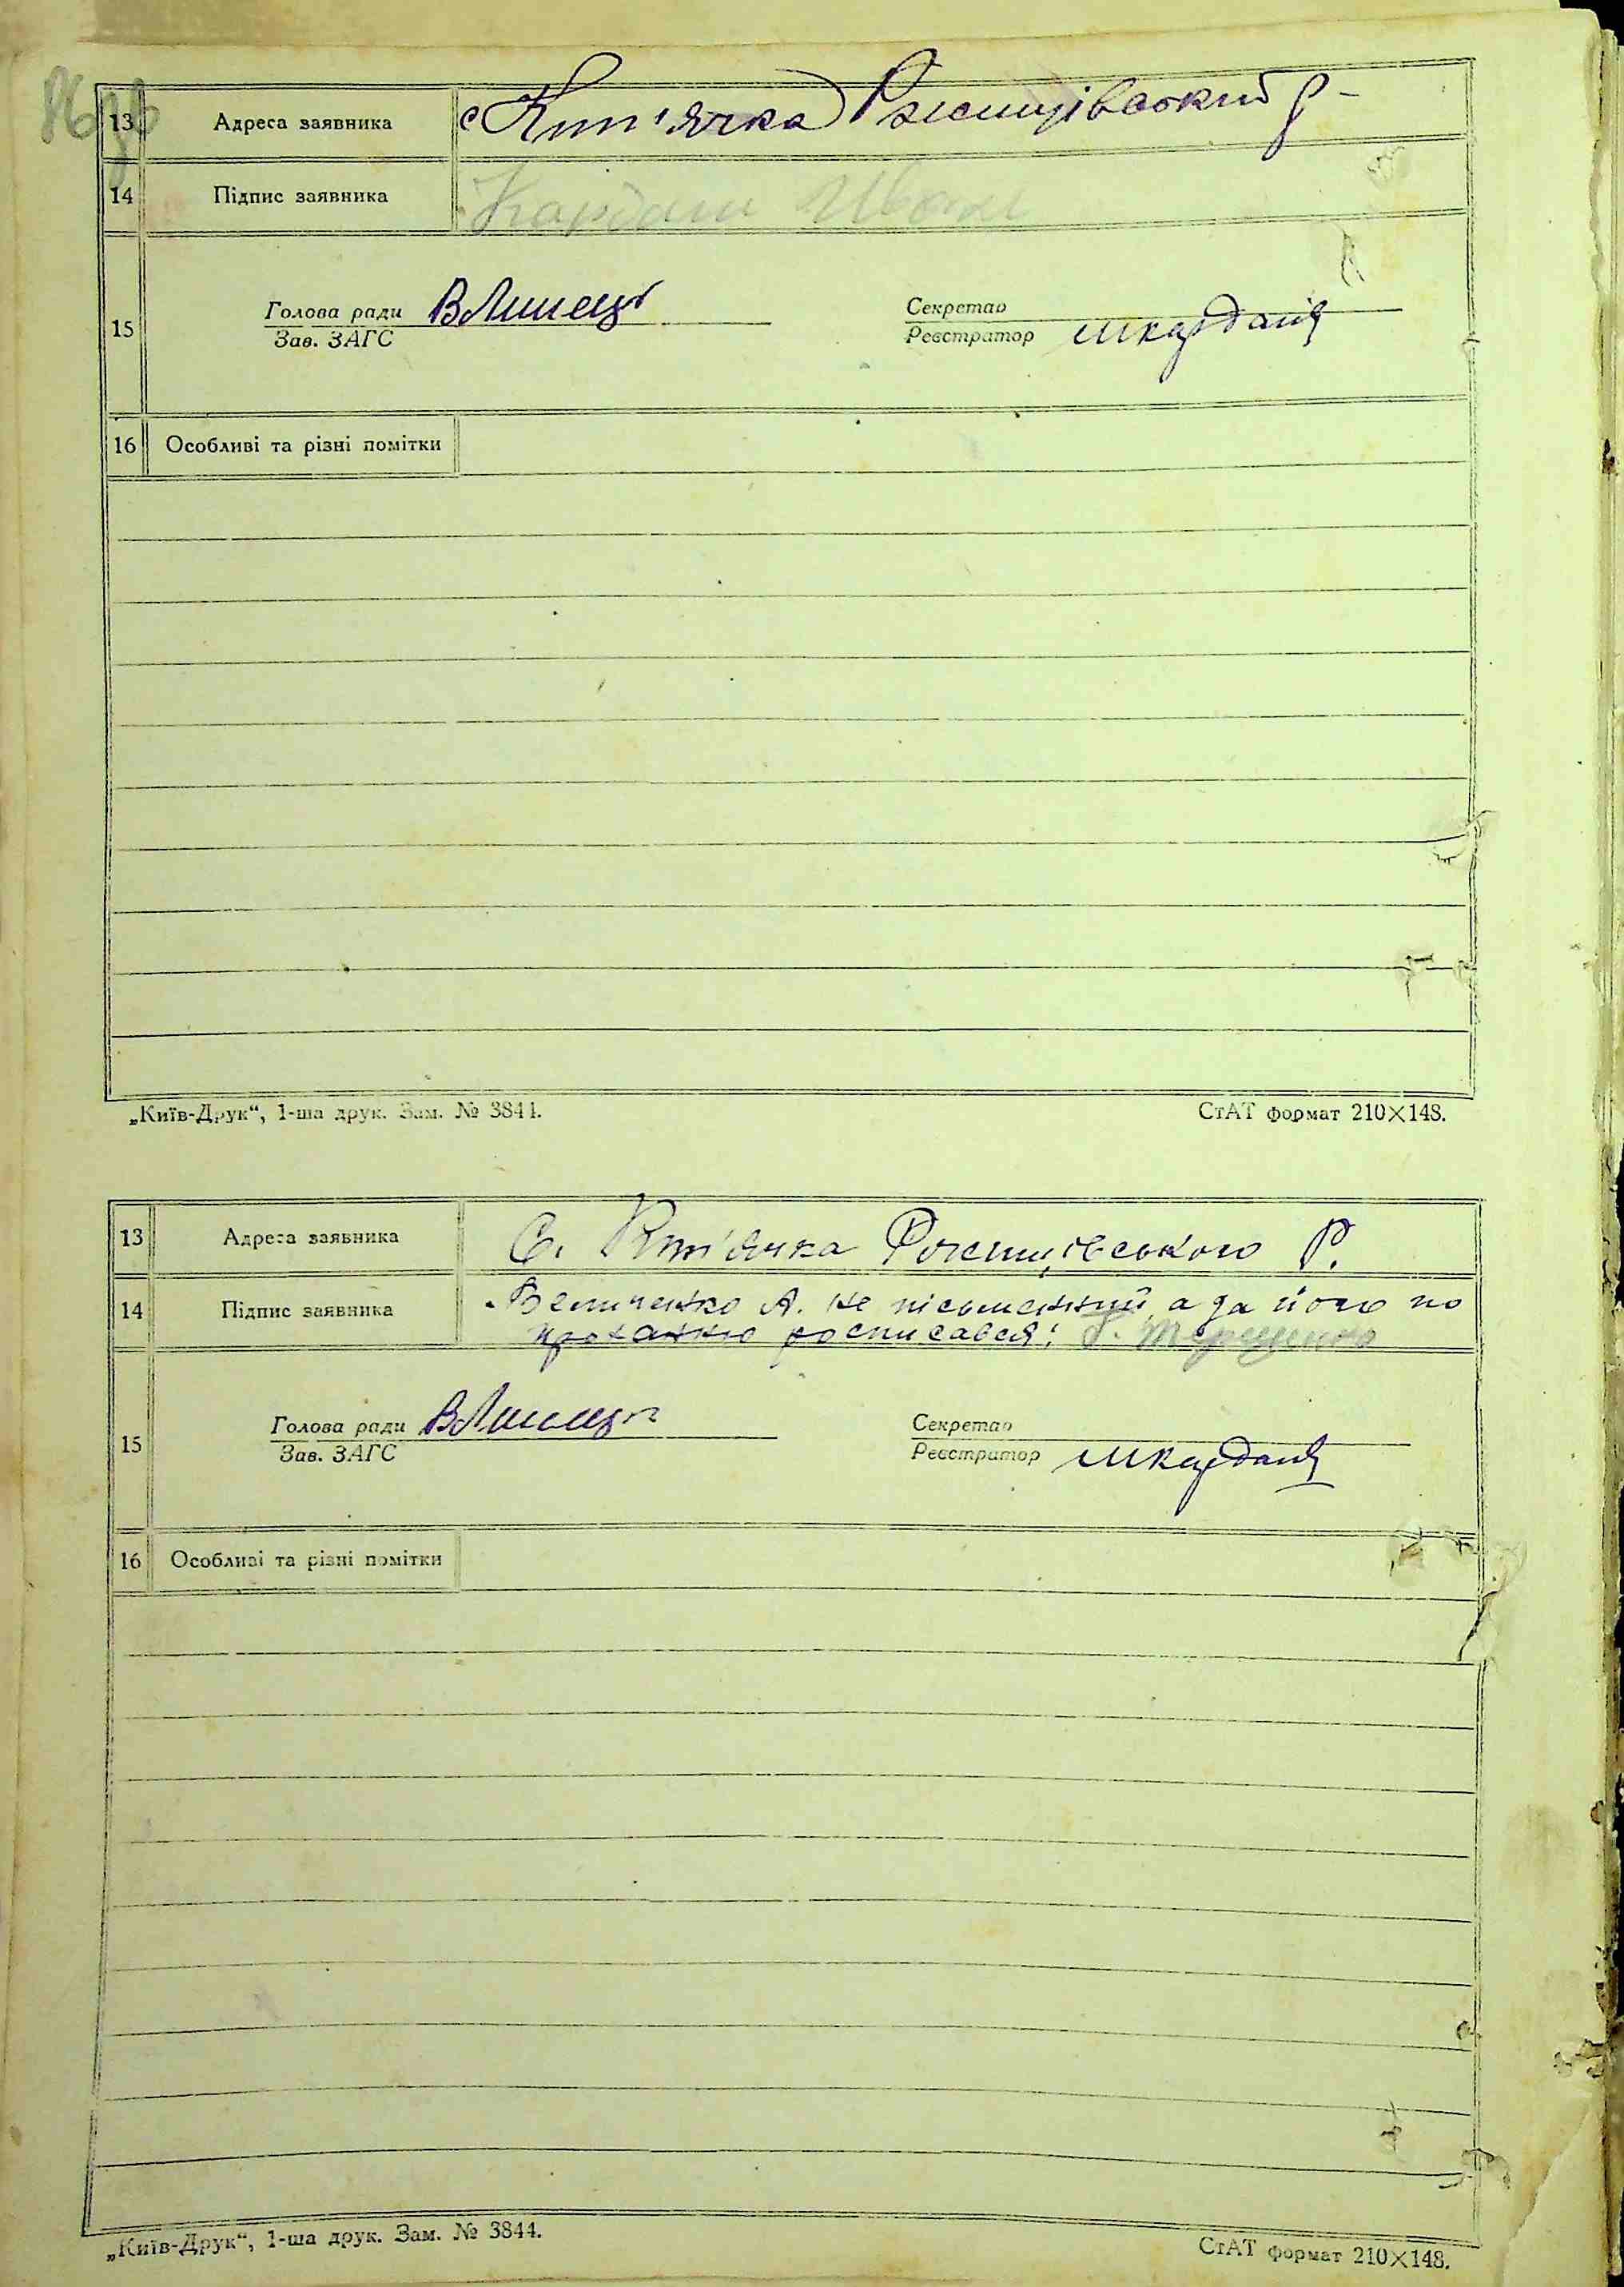 13 Адреса заявника с Кип'ячка Ржищівський р-
14 Підпис заявника Кардаш Иван
Голова ради Секретар
15
Зав. ЗАГС Реєстратор
16 Особливі та різні помітки
„Київ-Друк“, 1-ша друк. Зам. № 3844. СтАТ формат 210×148.
13 Адреса заявника С. Кип'ячка Р.
14 Підпис заявника Величенко А. не письменний, а за його по
проханню росписався: Терещенко
Голова ради Секретар
15
Зав. ЗАГС Реєстратор
16 Особливі та різні помітки
„Київ-Друк“, 1-ша друк. Зам. № 3844. СтАТ формат 210×148.